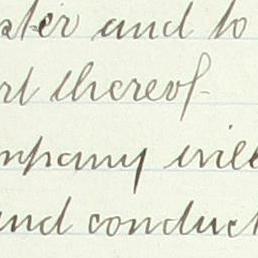 ster and to
rt thereof
mpany will
and conduct